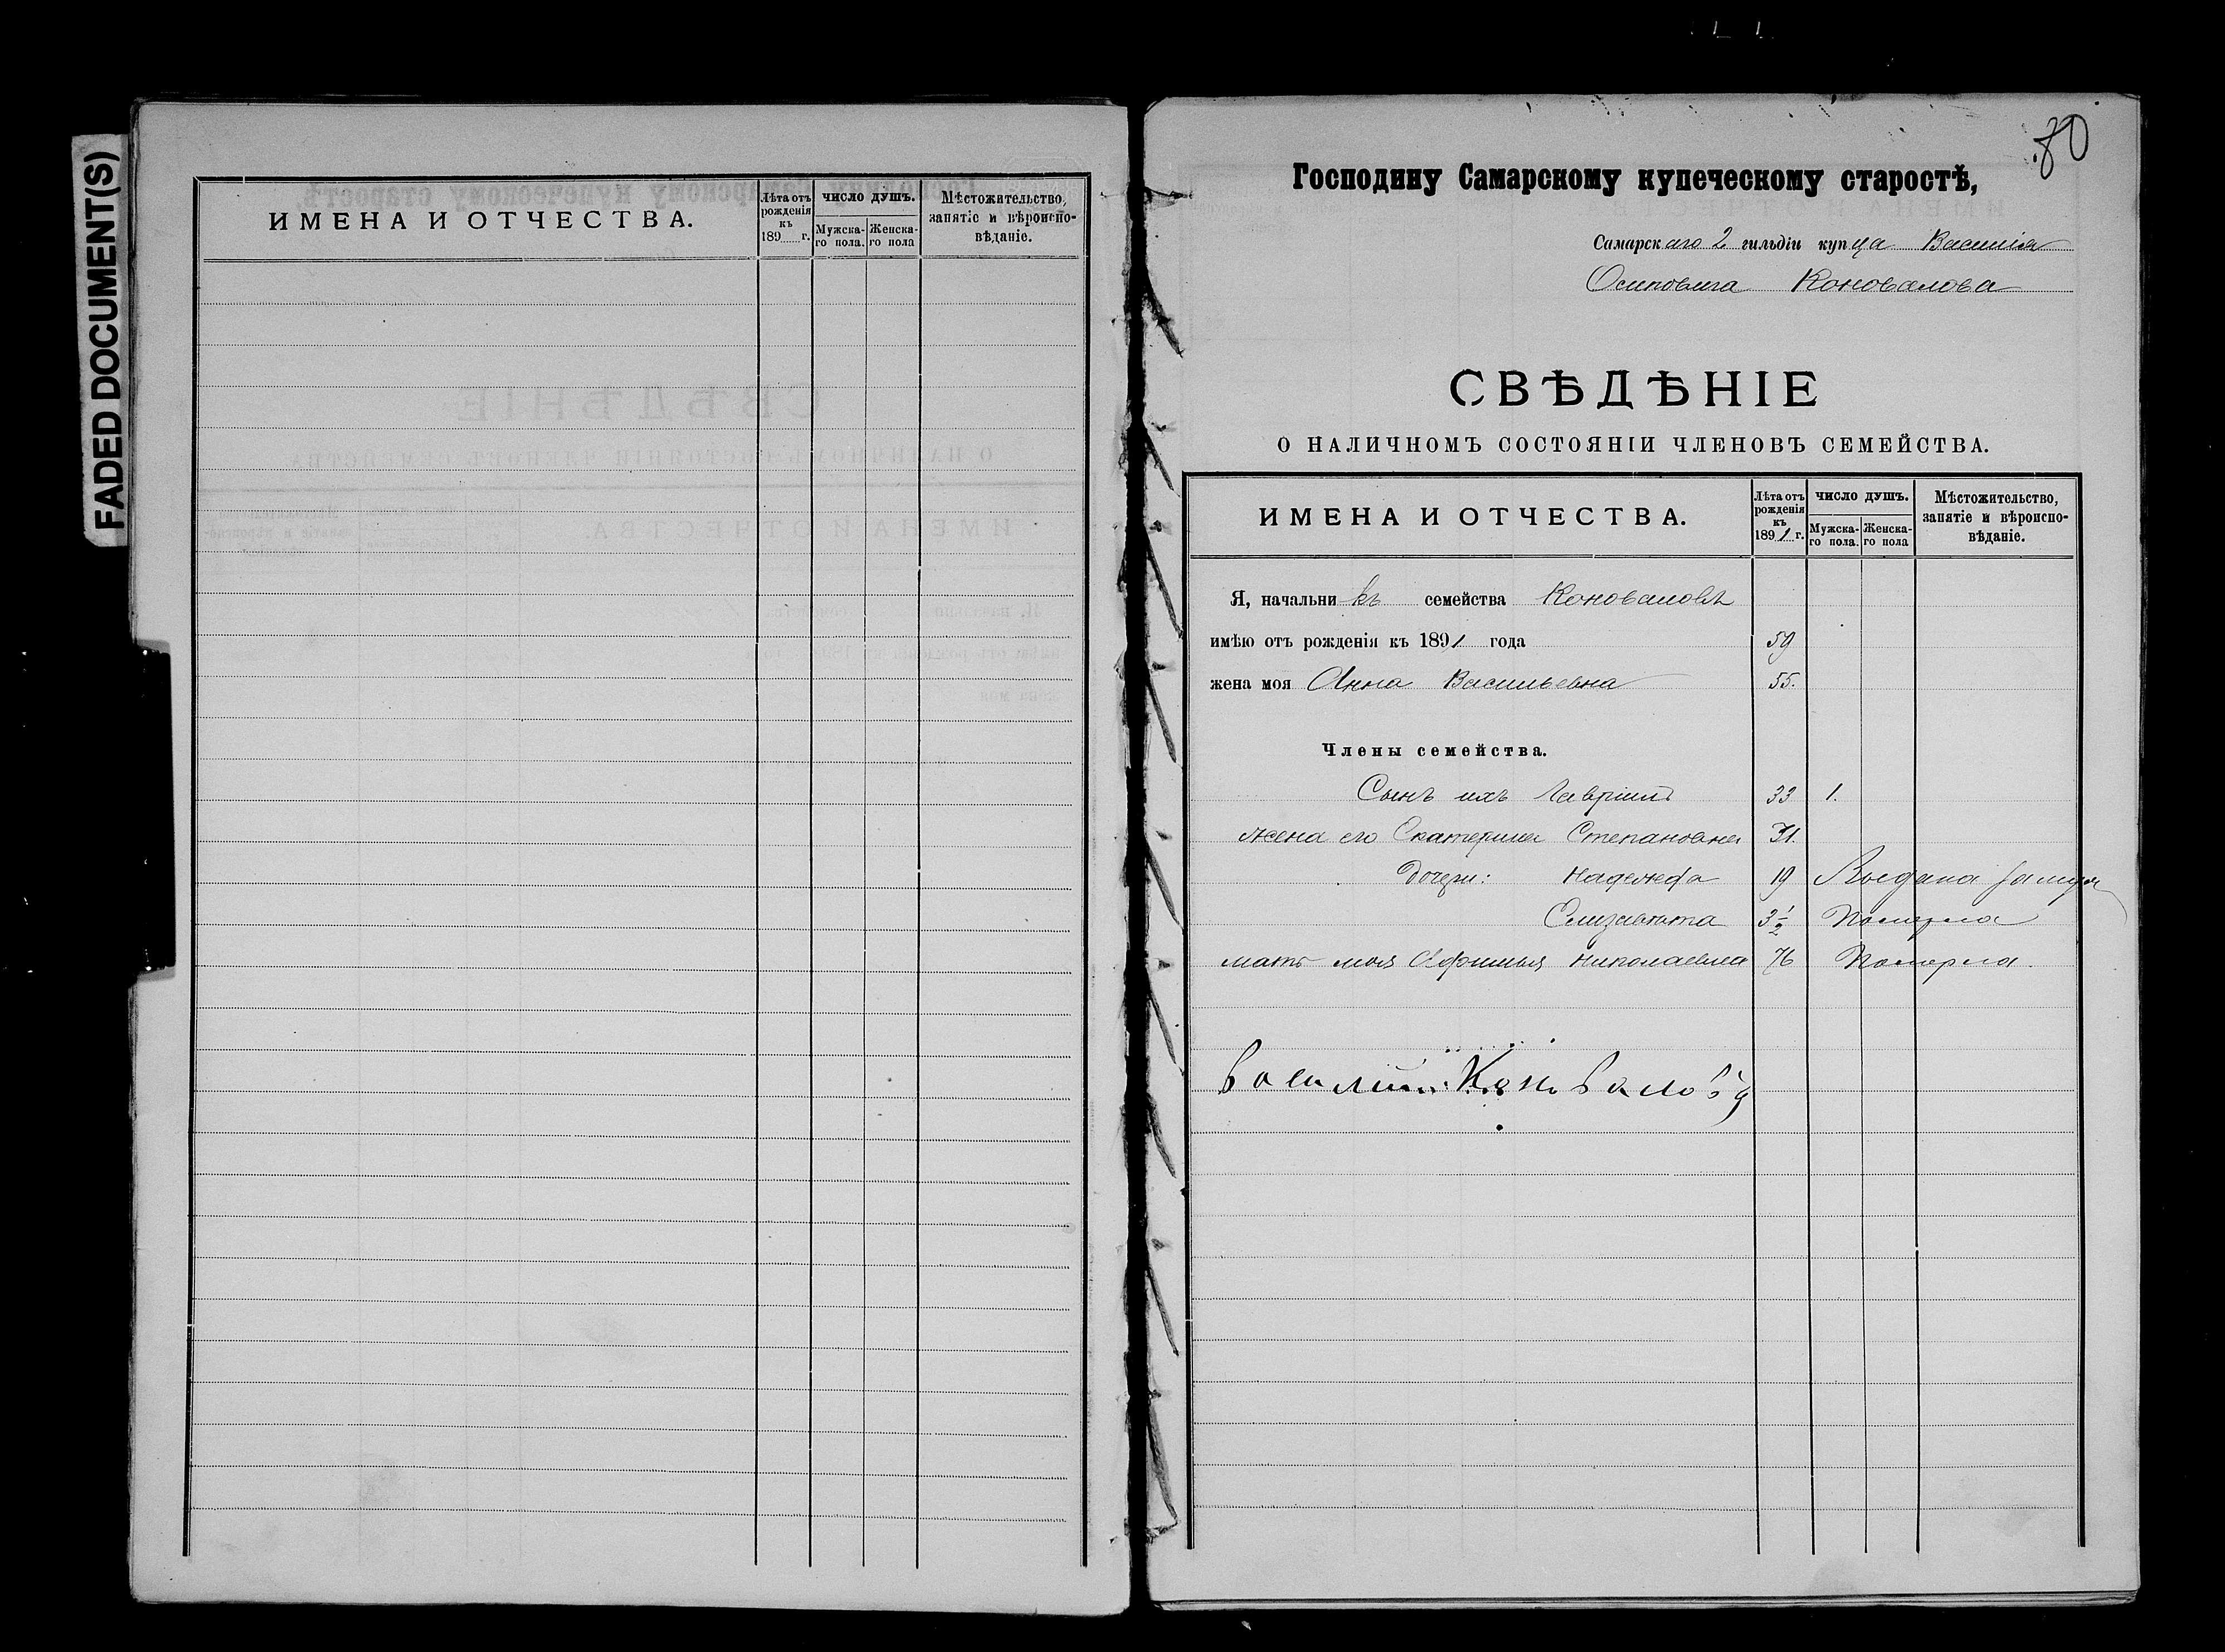 FADED DOCUMENT(S)
ИМЕНА И ОТЧЕСТВА.
Лѣта отъ рожденія къ 189 г.
ЧИСЛО ДУШЪ.
Мужска-го пола.
Женска-го пола
Мѣстожительство, занятіе и вѣроиспо-вѣданіе.
80
Господину Самарскому купеческому старостѣ,
Самарскаго 2 гильдіи купца Василія
Осиповича Коновалова
СВѢДѢНІЕ
О НАЛИЧНОМЪ СОСТОЯНІИ ЧЛЕНОВЪ СЕМЕЙСТВА.
ИМЕНА И ОТЧЕСТВА.
Лѣта отъ рожденія къ 1891 г.
ЧИСЛО ДУШЪ.
Мужска-го пола.
Женска-го пола
Мѣстожительство, занятіе и вѣроиспо-вѣданіе.
Я, начальникъ семейства Коноваловъ
имѣю отъ рожденія къ 1891 года 59
жена моя Анна Васильевна 55.
Члены семейства.
Сынъ ихъ Гавріилъ 33 1.
жена его Екатерина Степановна 31.
дочери: Надежда 19 Выдана замуж
Елизавѣта 3 1/2 Померла
мать моя Афимья Николаевна 76 Померла.
Василий Коноваловъ